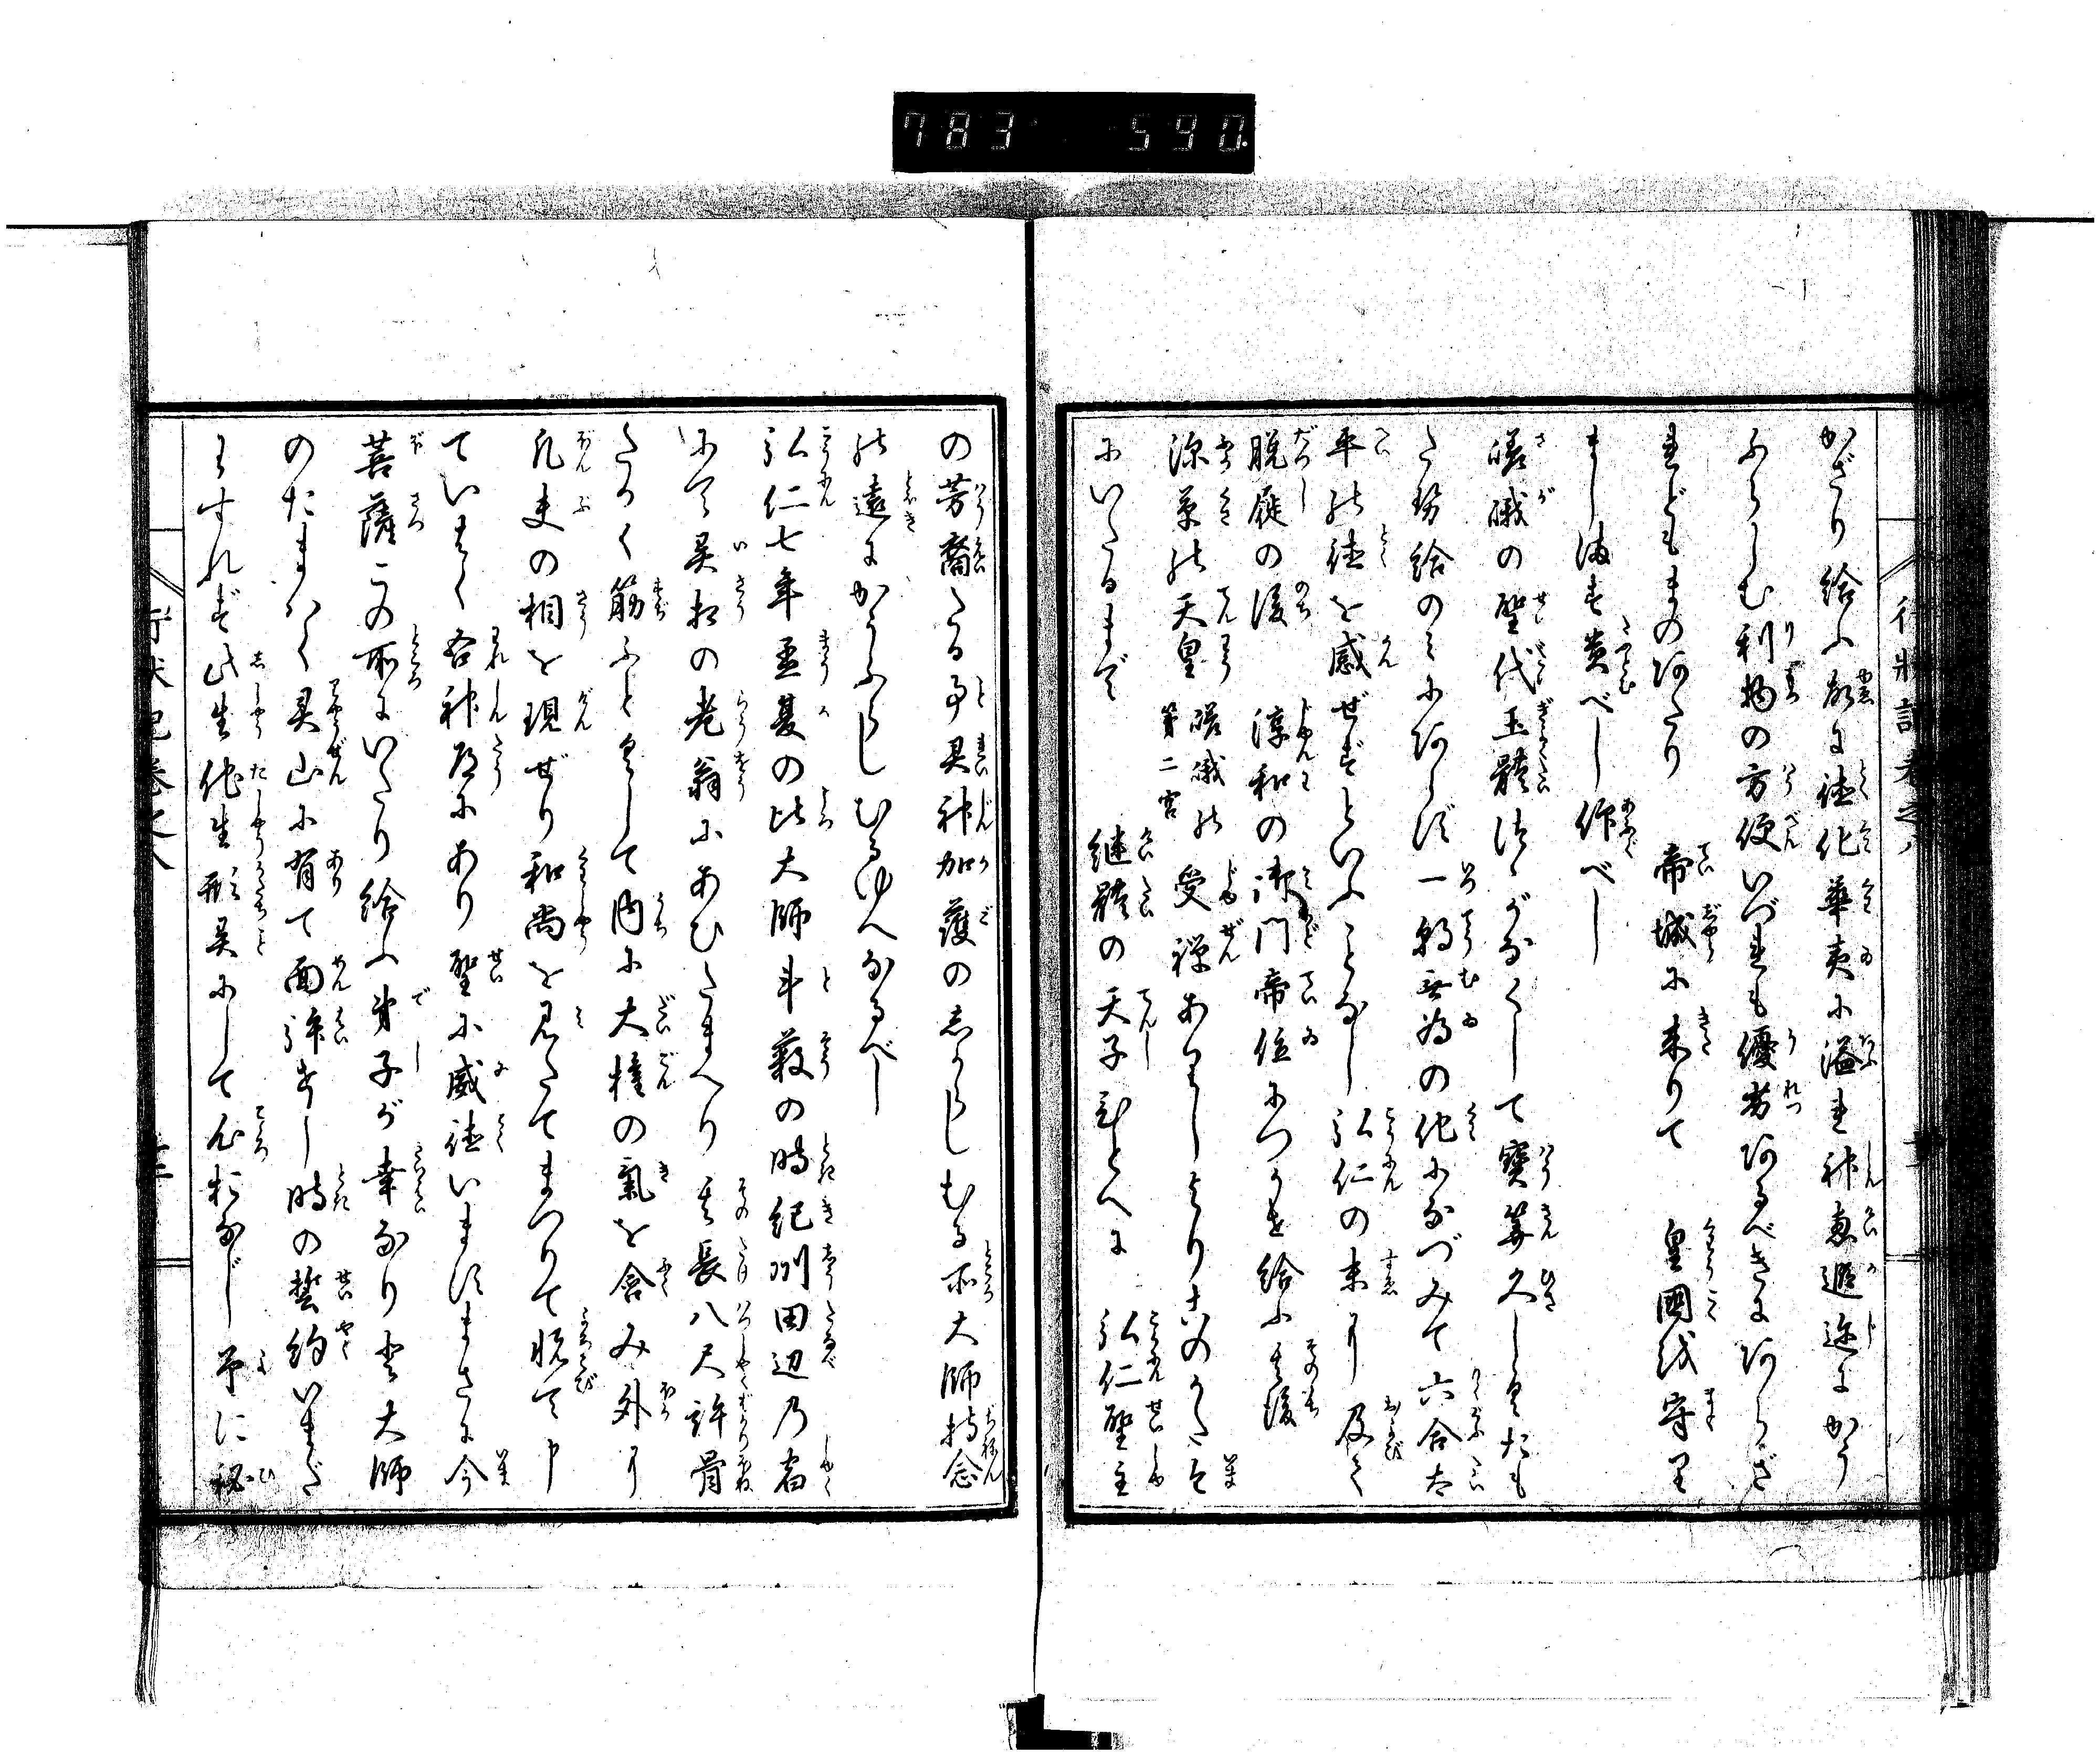 783 590
行状記巻之八
かざり給ふ故に徳化華夷に溢れ神恵遐迩にかう
ふらしむ利物の方便いづれも優劣あるべきにあらざ
れどもまのあたり 帝城に来りて 皇國を守り
まします貴べし仰べし
嵯峨の聖代玉體つゝがなくして寶算久しくたも
たせ給のみにあらず一朝無為の化になづみて六合太
平の徳を感ぜずといふことなし弘仁の末に及て
脱屣の後 淳和の御門帝位につかせ給ふ其後
深草の天皇 嵯峨の第二宮 受禅ありしよりこのかた今
にいたるまで 継體の天子ひとへに 弘仁聖主
の芳裔たる事是神加護のしからしむる所大師持念
の遠にかうふらしむるゆへなるべし
弘仁七年孟夏の比大師斗薮の時紀州田辺乃宿
にて異相の老翁にあひたまへり其長八尺許骨
たかく筋ふとくして内に大権の氣を含み外に
凡夫の相を現ぜり和尚を見たてまつりて悦て申
ていはく吾神道にあり聖に威徳いますまさに今
菩薩この所にいたり給ふ弟子が幸なりと大師
のたまはく霊山に有て面拜せし時の誓約いまだ
わすれず此生他生形異にして心おなじ予に秘
行状記巻之八